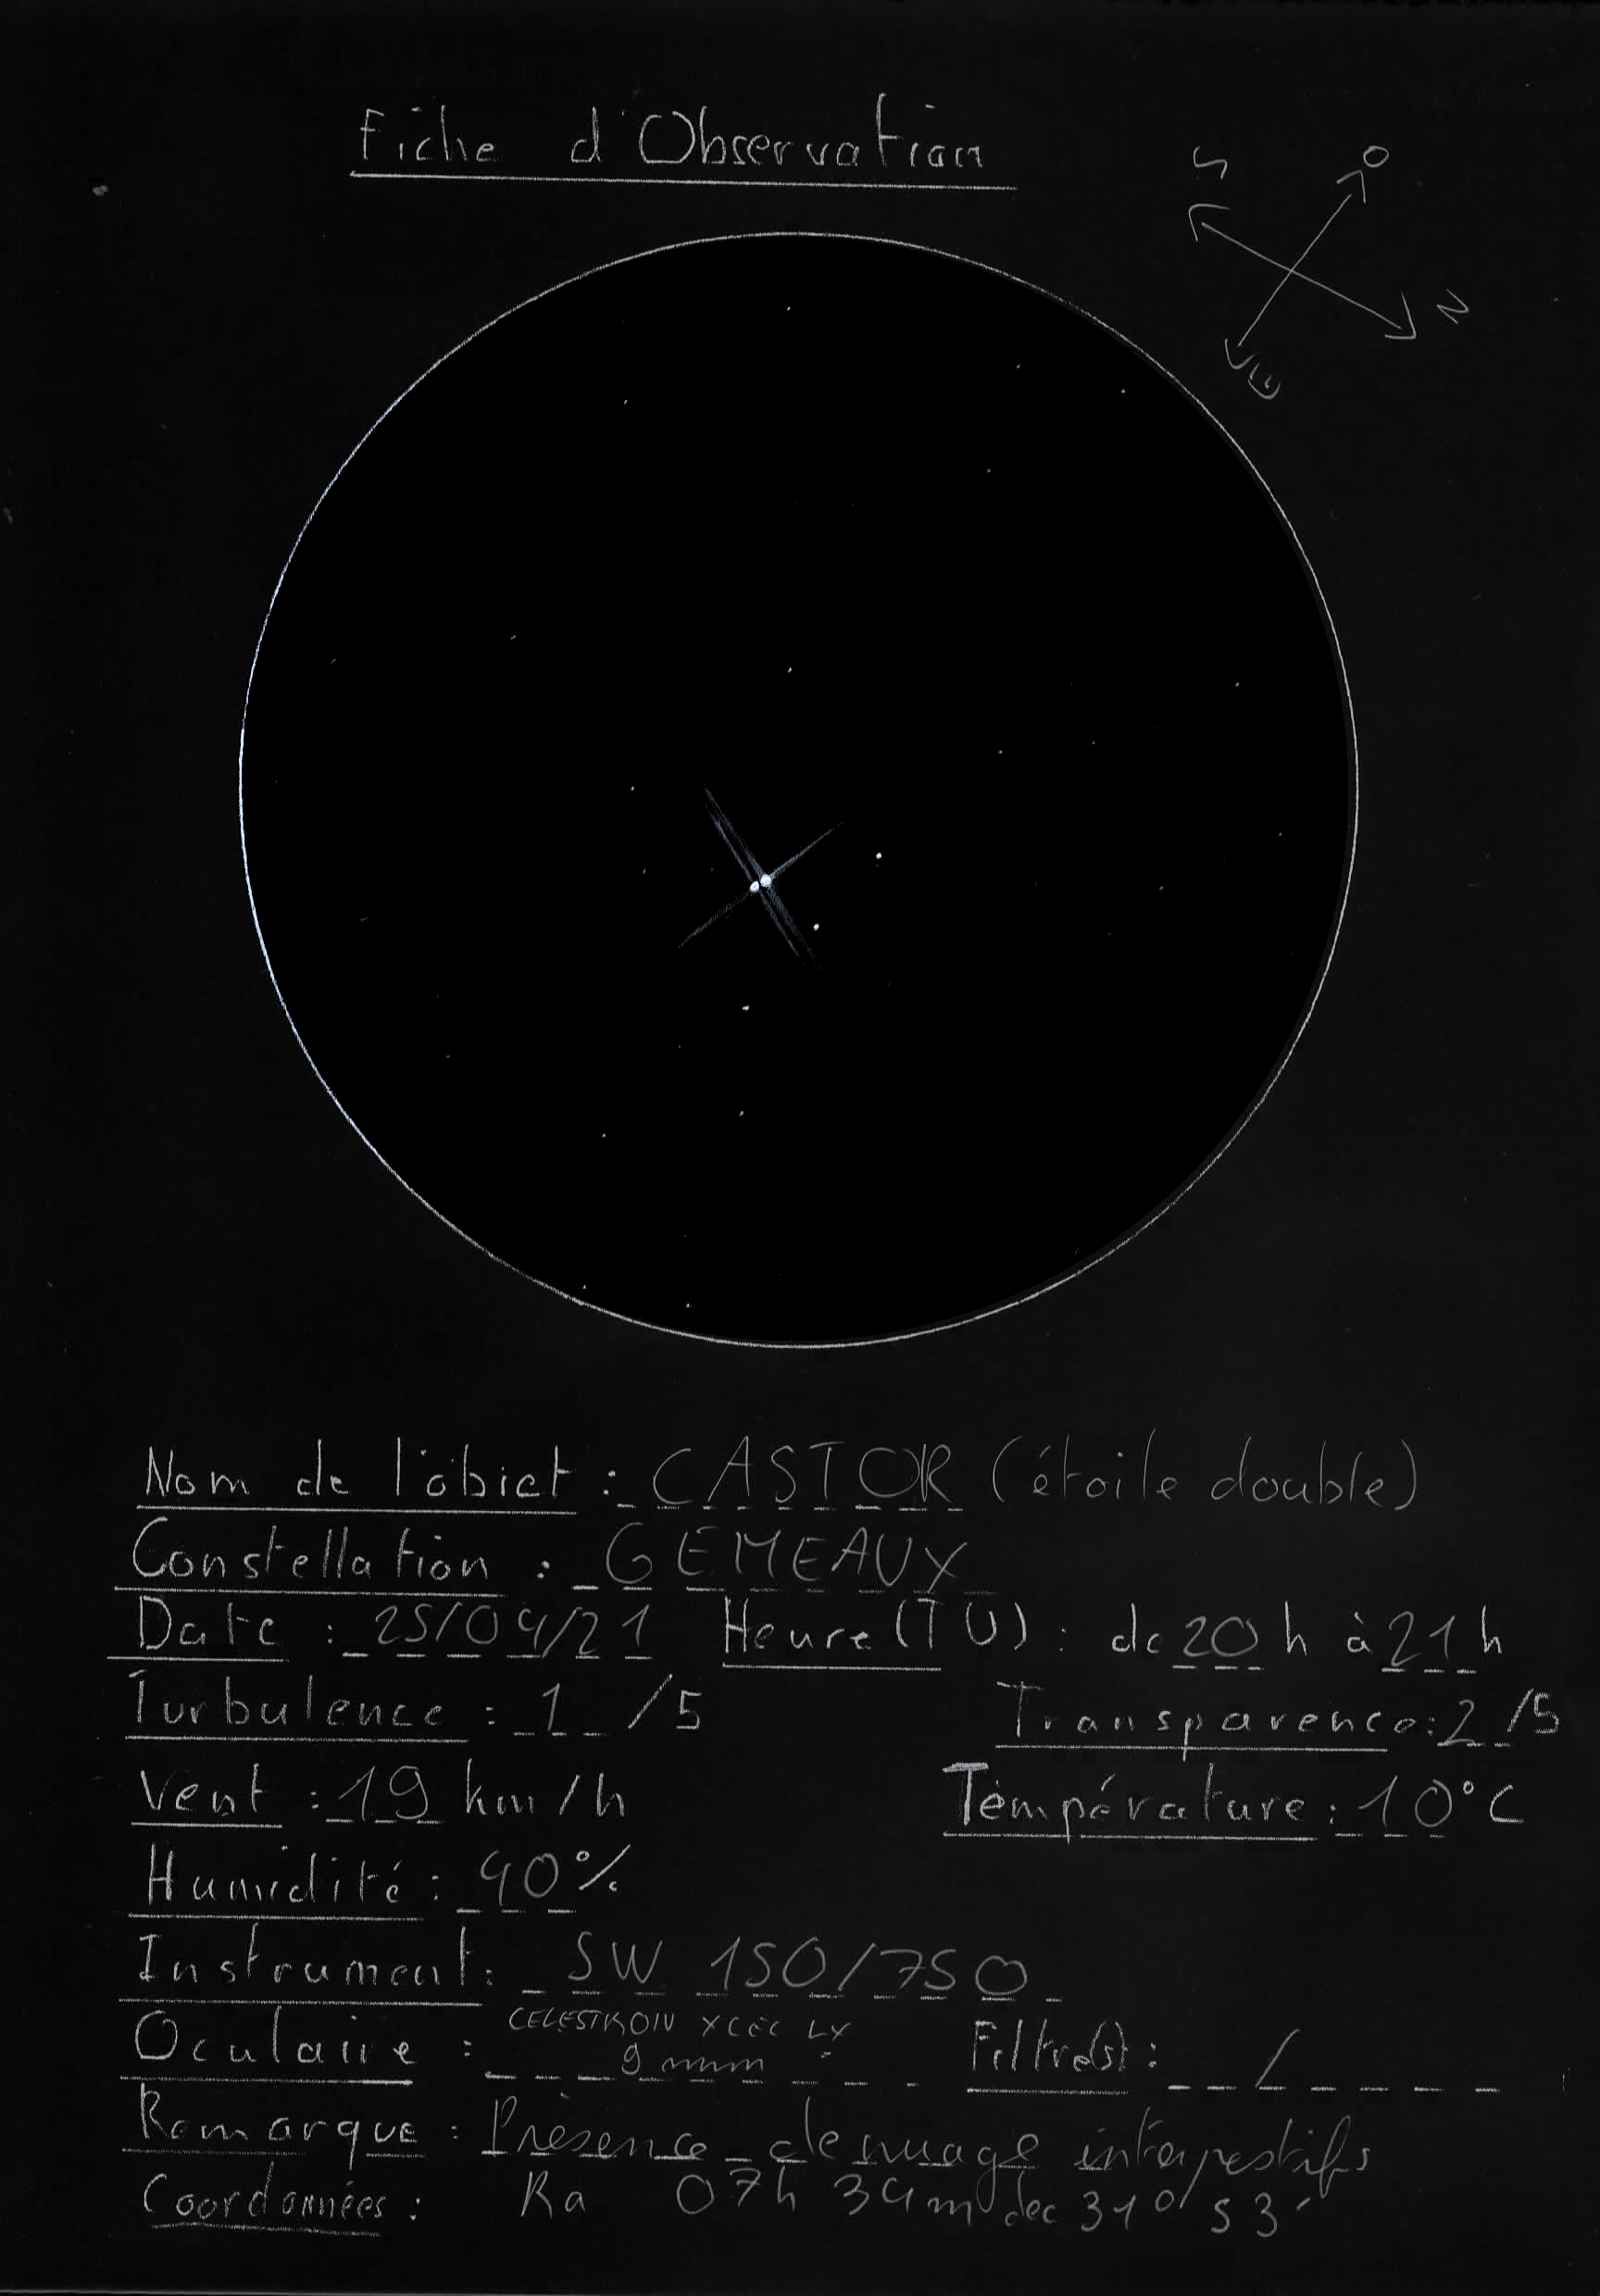 Fiche d'Observation
S
O
N
E
Nom de l'objet : CASTOR (étoile double)
Constellation : GEMEAUX
Date : 25/04/21 Heure (TU) : de 20 h à 21 h
Turbulence : 1 /5 Transparence : 2 /5
Vent : 19 km/h Température : 10°C
Humidité : 40%
Instrument : SW 150/750
CELESTRON XCEL LX
Oculaire : 9 mm Filtre(s) : /
Remarque : Présence de nuage intempestifs
Coordonnées : Ra 07h 34m dec 31° 53'